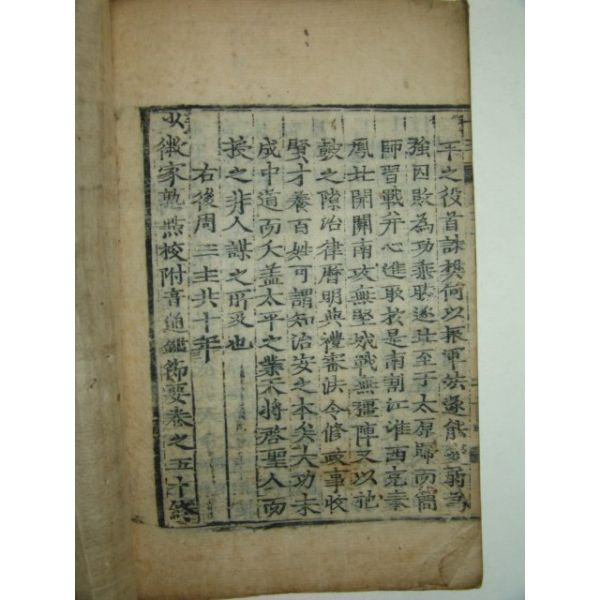 平之役首誅樊何以振軍法遂能弱為
強因敗為功乘勝逐北至于太原歸而簡
師習戰并心進取於是南割江淮西克秦
鳳北開關南攻無堅城戰無彊陣又以
鼓之隙治律曆明典禮審法令修政事收
賢才養百姓可謂知治安之本矣大功未
成中道而夭盖太平之業天將啓聖人而
授之非人謀之所及也
右後周三主共十年
少微家塾點校附音通鑑節要卷之五十終